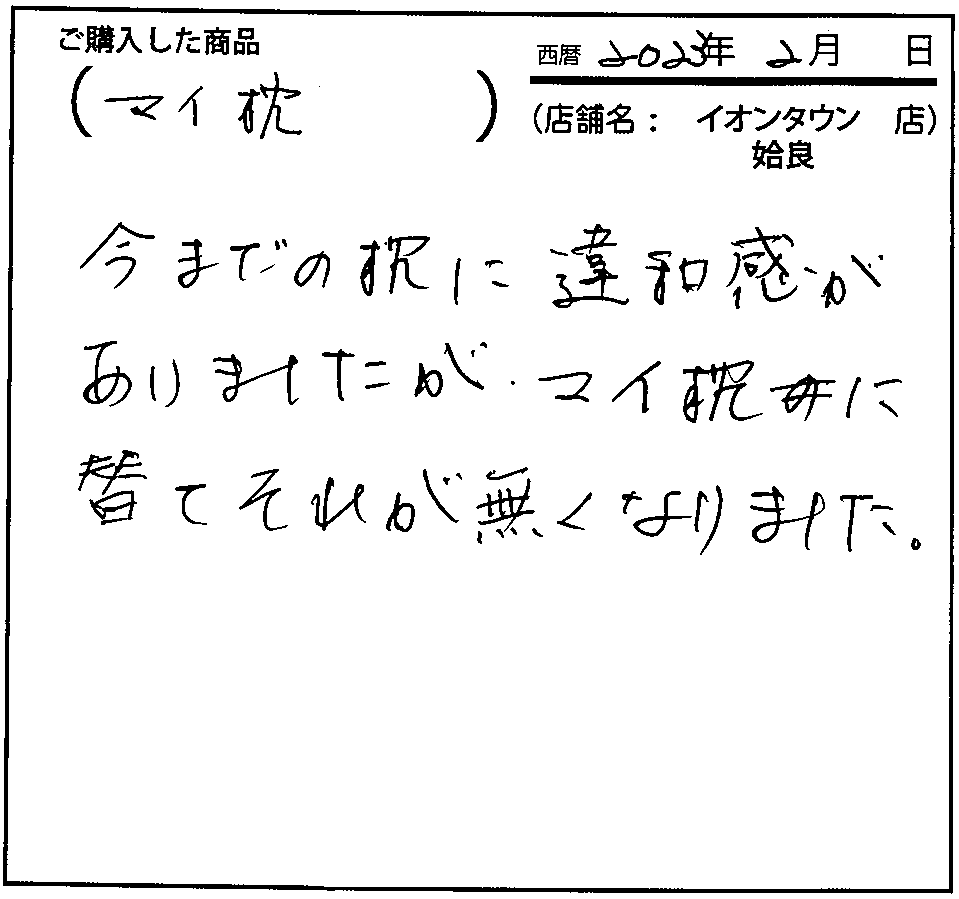 ご購入した商品
(マイ枕)
西暦 2023年 2月 日
(店舗名： イオンタウン 店)
姶良
今までの枕に違和感が
ありましたが、マイ枕に
替てそれが無くなりました。